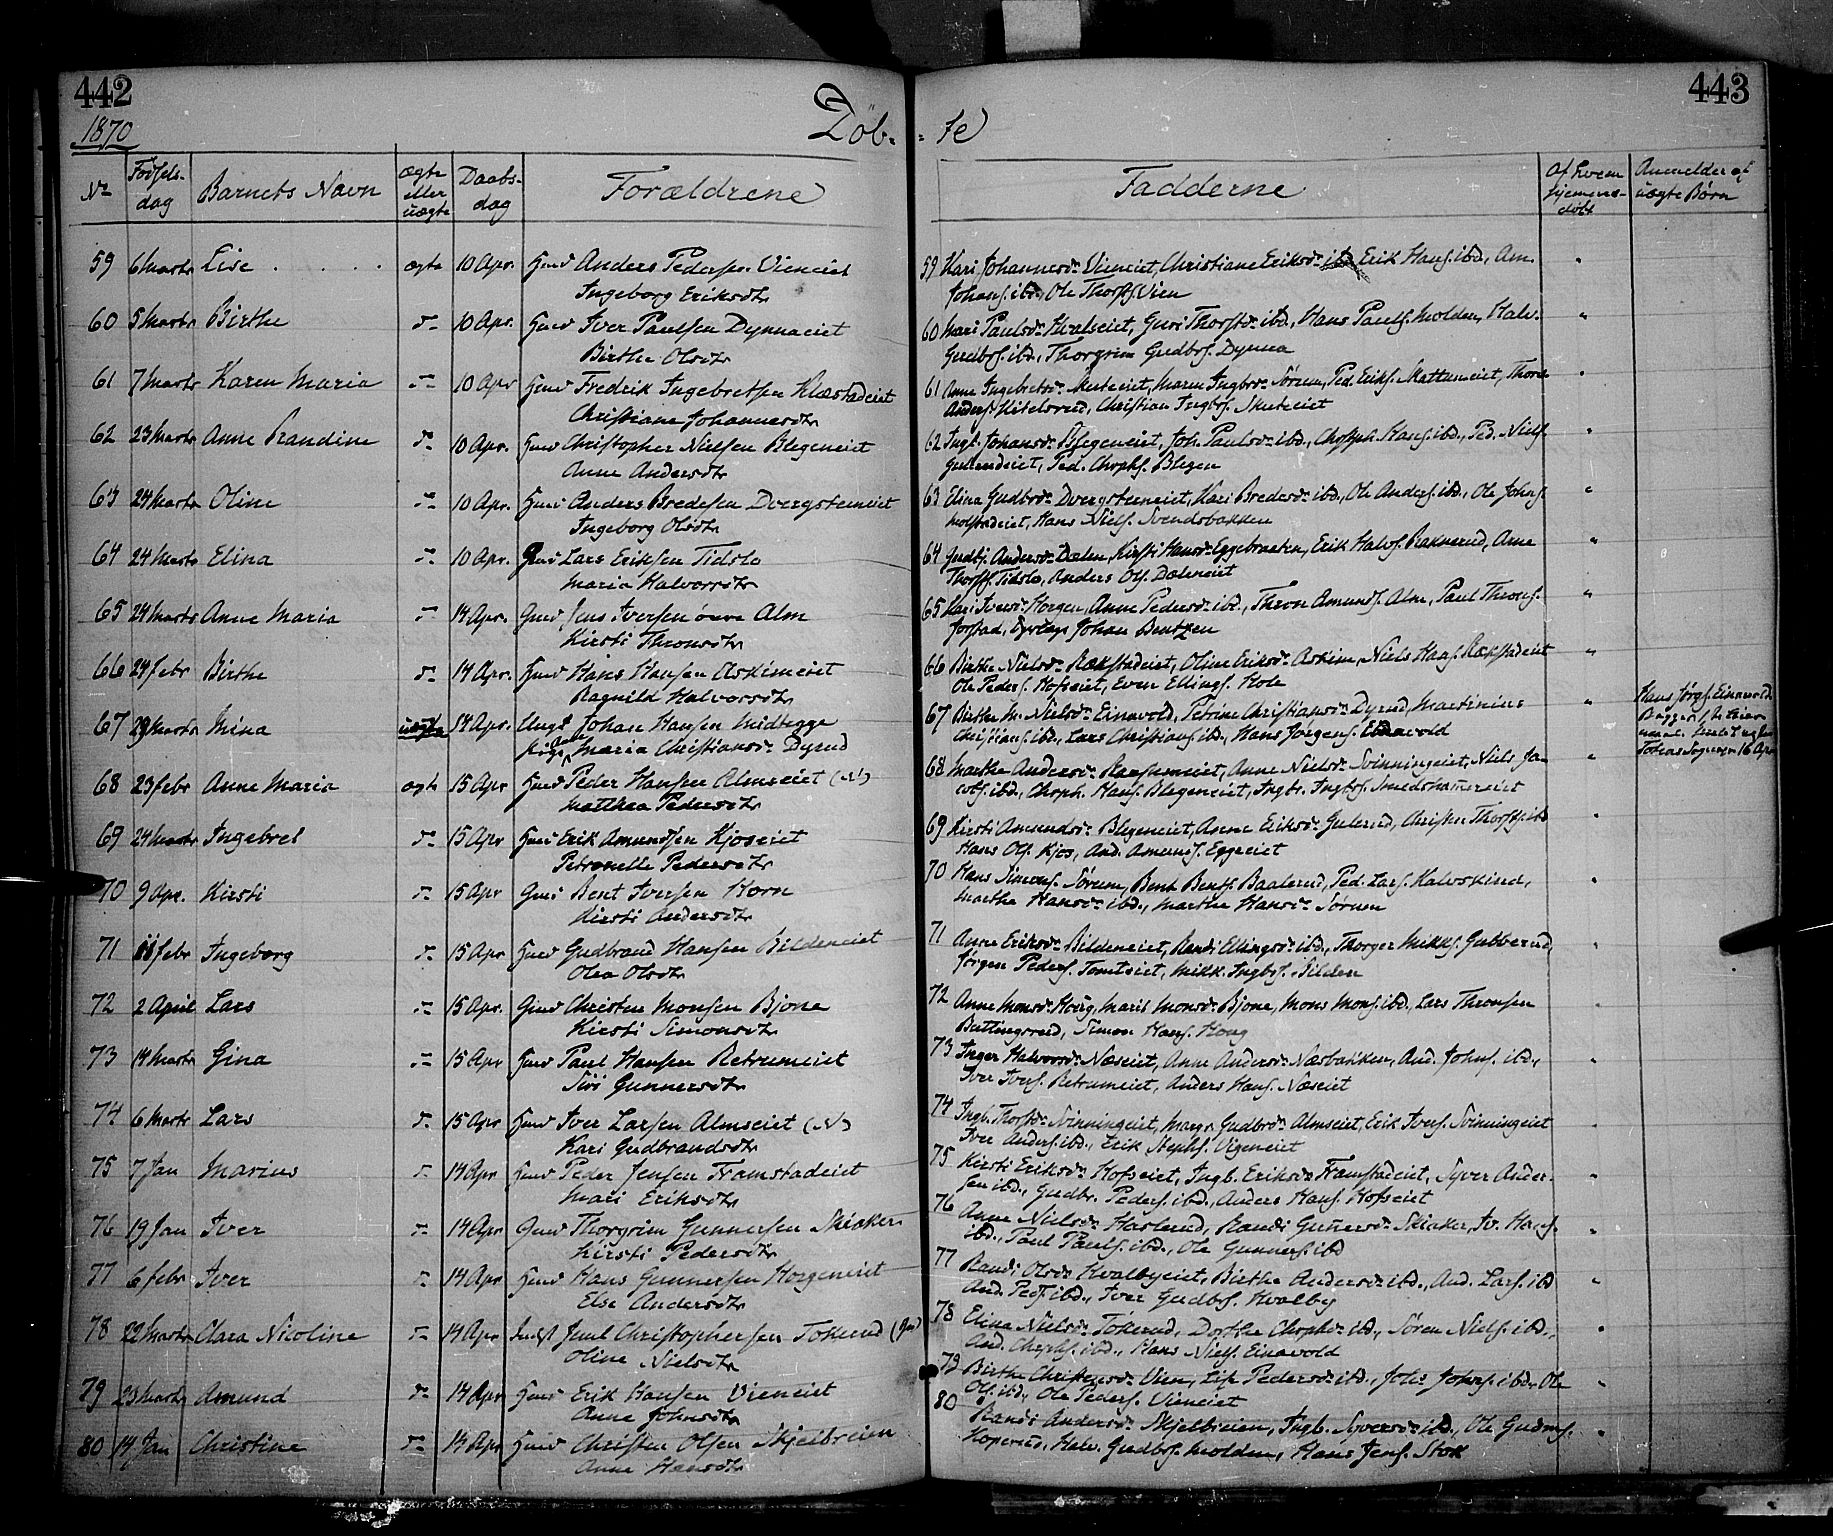 442
1870
Døb-
No
Fødsels-
dag
Barnets Navn
ægte
eller
uægte
Daabs-
dag
Forældrene
59 6 Marts Lise . . . . . ægte 10 Apr. Huusd Anders Peders. Vieneiet
Ingeborg Eriksdtr
60 5 Marts Birthe 10 Apr. Iver Paulsen Dynnaeiet
Birthe Olsdtr
61 7 Marts Karen Maria 10 Apr Fredrik Ingebretsen Klæstadeiet
Christiane Johannesdtr
62 23 Marts Anne Randine 10 Apr. Christopher Nielsen Blegeneiet
Anne Andersdtr
63 24 Marts Oline 10 Apr. Anders Bredesen Dvergsteneiet
Ingeborg Olsdtr
64 24 Marts Elina 10 Apr. Lars Eriksen Tidslo
Maria Halvorsdtr
65 24 Marts Anne Maria 14 Apr. Jens Iversen øvre Alm
Kirsti Thronsdtr
66 24 febr Birthe 14 Apr. Hans Hansen Askimeiet
Ragnild Halvorsdtr
67 29 Marts Mina uægte 14 Apr. Ungk Johan Hansen Midtegge
pige Maria Christiansdr Dyrud
68 23 febr Anne Maria ægte 15 Apr Peder Hansen Almseiet (N)
Matthea Pedersdtr
69 24 Marts Ingebret 15 Apr Erik Amundsen Kjoseiet
Petronelle Pedersdtr
70 9 Apr. Kirsti 15 Apr Bent Iversen Horn
Kirsti Andersdtr
71 11 febr Ingeborg 15 Apr Gudbrand Hansen Bildeneiet
Olea Olsdtr
72 2 April Lars 15 Apr. Christen Monsen Bjone
Kirsti Simonsdtr
73 14 Marts Gina 15 Apr Paul Hansen Retrumeiet
Siri Gunnersdtr
74 6 Marts Lars 15 Apr Iver Larsen Almseiet (N)
Kari Gudbrandsdtr
75 7 Jan Marius 14 Apr Peder Jensen Framstadeiet
Mari Eriksdtr
76 19 Jan Iver 14 Apr Thorgrim Gunnersen Skiaker
Kirsti Pedersdtr
77 6 febr Iver 14 Apr Hans Gunnersen Horgeneiet
Else Andersdtr
78 22 Marts Clara Nicoline 14 Apr Indst Juul Christophersen Tokerud
Oline Nielsdtr
79 23 Marts Amund 14 Apr Erik Hansen Vieneiet
Anne Johnsdtr
80 14 Jan Christine 14 Apr Christen Olsen Skjelbreien
Anne Hansdtr
443
te
Fadderne
Af hvem
hjemme-
døbt
Anmelder af
uægte Børn
59 Kari Johannesdr Vieneiet, Christiane Eriksdr ibd, Erik Hans. ibd., Am.
Johans. ibd, Ole Thorsts. Vien
60 Mari Paulsdr Hvalseiet, Guri Thorstdr ibd., Hans Pauls. Molden, Halv.
Gudbrs. ibd., Thorgrim Gudbrs. Dynna
61 Anne Ingebretsdr Skuteeiet, Maren Ingbrdr Sørum, Ped. Eriks. Mattumeiet, Thord
Anders. Kitelsrud, Christian Ingbrs. Skuteiet
62 Ingb. Johansdr Blegeneiet, Joh. Paulsdr ibd., Chrstph. Hans. ibd., Ped. Niels.
Ped. Chrphs. Blegen
63 Elina Gudbrdr Dvergsteneiet, Kari Bredesdr ibd., Ole Anders. ibd., Ole Johns.
Molstadeiet, Hans Niels. Svendsbakken
64 Andersdr Dælen, Kirsti Hansdr Eggebraaten, Erik Halvs. Raknerud, Arne
Thorsts. Tidslo, Anders Ols. Dæleneiet
65 Kari Iversdr Horgen, Anne Pedersdr ibd., Thron Amunds. Alm, Paul Throns.
Jorstad, Dyrlæge Johan Bentzen
66 Birthe Nielsdr Rækstadeiet, Oline Eriksdr Askim, Niels Hans. Rækstadeiet
Ole Peders. Hofseiet, Even Ellings. Hole
67 Birthe M. Nielsdr Einavold, Petrine Christiansdr Dyrud, Martinius
Christians. ibd., Lars Christians. ibd., Hans Jørgens. Einavold
Hans Jørgs. Einavold
68 Marthe Andersdr Ransumeiet, Anne Nielsdr Svinningeiet, Niels Ja-
cobs. ibd., Chrph. Hans. Blegeneiet, Ingbr. Ingbrs. Smedshamereiet
69 Kirsti Amundsdr Blegeneiet, Anne Eriksdr Gulerud, Christen Thorsts. ibd
Hans Ols. Kjos, And. Amunds. Eggeeiet
70 Hans Simons. Sørum, Bent Bents. Baalerud, Ped. Lars. Halvskind,
Marthe Hansdr ibd., Marthe Hansdr Sørum
71 Anne Eriksdr Bildeneiet, Randi Ellingsdr ibd., Thorger Mikks. Gubberud,
Jørgen Peders. Tomteiet, Mikk. Ingbrs. Bilden
72 Anne Monsdr Hong, Marit Monsdr Bjone, Mons Mons. ibd., Lars Thronsen
Buttingsrud, Simon Hans. Hong
73 Inger Halvorsdr Næseiet, Anne Andersdr Næsbakken, And. Johns. ibd.,
Iver Ivers. Retrumeiet, Anders Hans. Næseiet
74 Ingb. Thorstdr Svinningeiet, Margr. Gudbrdr Almseiet, Erik Ivers. Svinningeiet
Iver Anders. ibd., Erik Stephs. Vigeneiet
75 Kirsti Eriksdr Hofseiet, Ingb. Eriksdr Framstadeiet, Syver Ander-
sen ibd., Gudbr. Peders. ibd., Anders Hans. Hofseiet
76 Anne Nielsdr Haslerud, Randi Gunersdr Skiaker, Iv. Hans.
ibd., Paul Pauls. ibd., Ole Gunners. ibd
77 Randi Olsdr Hvalbyeiet, Birthe Andersdr ibd., And. Lars. ibd
And. Peds. ibd., Iver Gudbrs. Hvalby
78 Elina Nielsdr Tokerud, Dorthe Chrphdr ibd., Søren Niels. ibd.,
And. Chrphs. ibd., Hans Niels. Einavold
79 Birthe Christensdr Vien, Lise Pedersdr ibd., Johs Johns. ibd., Ole
Ols. ibd., Ole Peders. Vieneiet
80 Randi Andersdr Skjelbreien, Ingb. Syversdr ibd., Ole Gudms.
Koperud, Halv. Gudbrs. Molden, Hans Jens. Stok